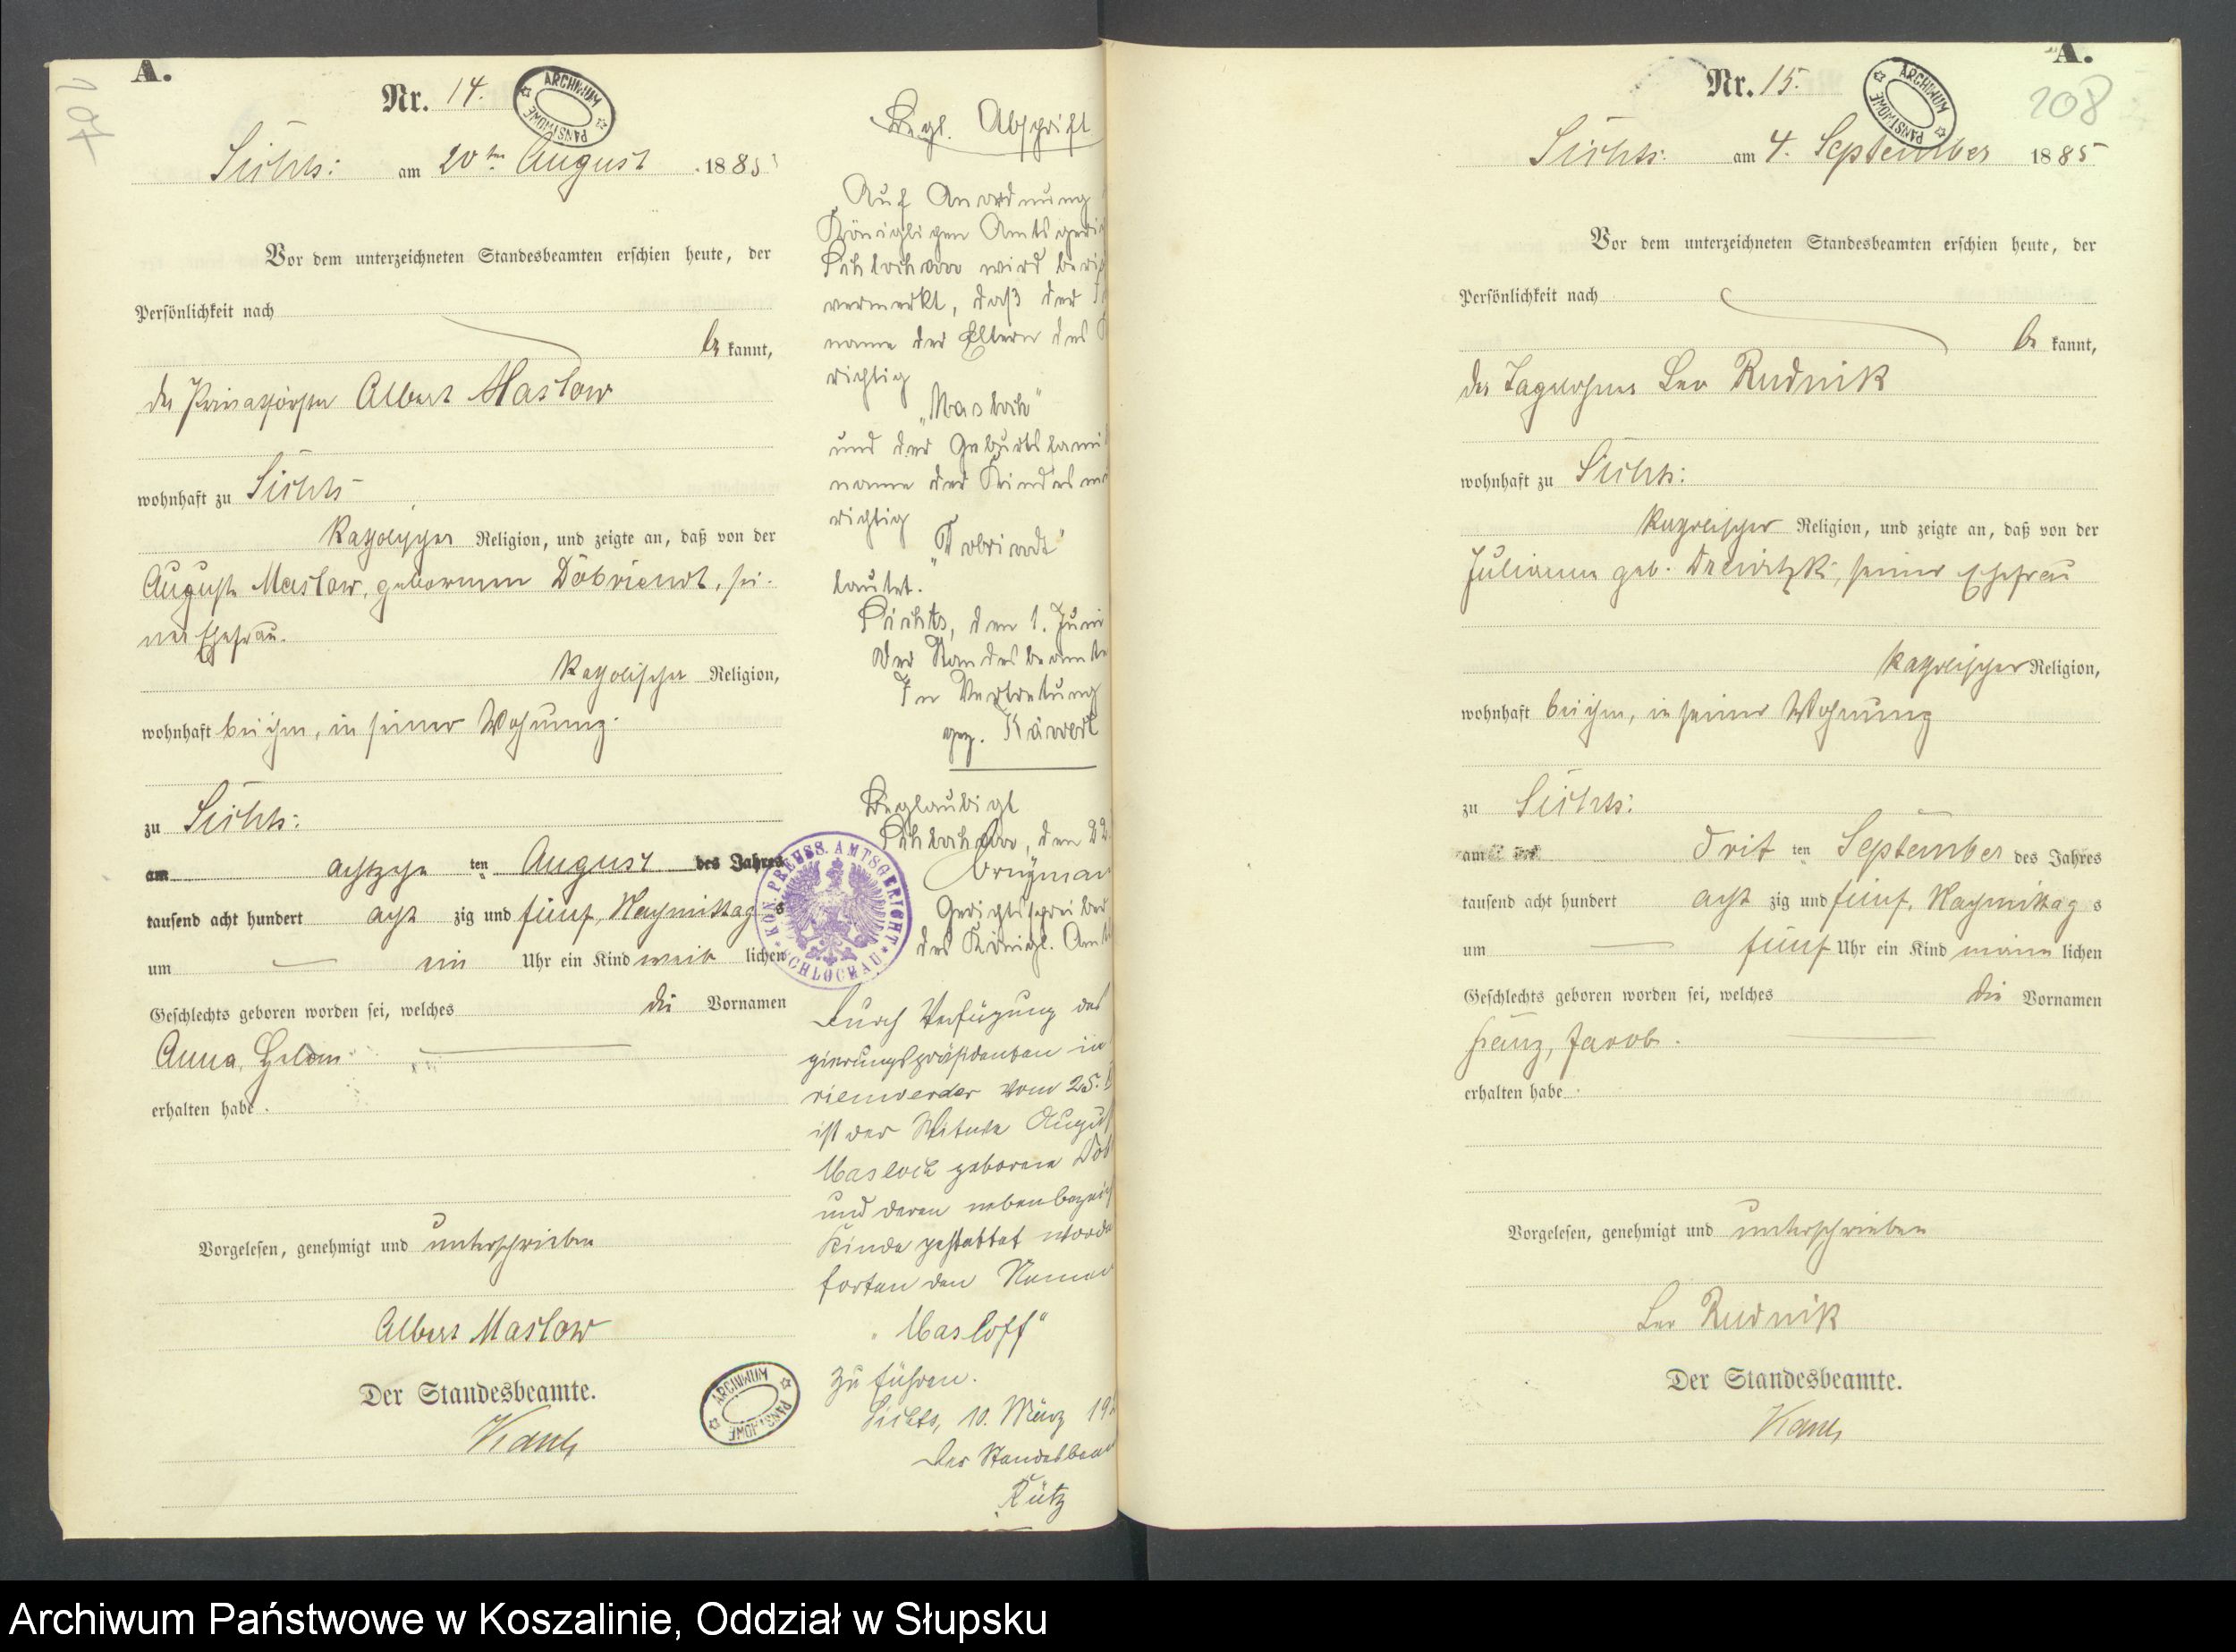 A.
107
Nr. 14.
ARCHIWUM PAŃSTWOWE
am 20ten August 1885
Vor dem unterzeichneten Standesbeamten erschien heute, der
Persönlichkeit nach
be kannt,
der Albert Maslow
wohnhaft zu
katholischer Religion, und zeigte an, daß von der
Auguste Maslow, geborenen Döbriendt, sei-
ner Ehefrau.
katholischer Religion,
wohnhaft bei ihm, in seiner Wohnung.
zu
am achtzehn ten August des Jahres
tausend acht hundert acht zig und fünf, Nachmittag s
um ein Uhr ein Kind weib lichen
Geschlechts geboren worden sei, welches die Vornamen
Anna,
erhalten habe.
Vorgelesen, genehmigt und unterschrieben
Albert Maslow
Der Standesbeamte.
ARCHIWUM PAŃSTWOWE
Begl. Abschrift
Auf Anordnung
Königlichen Amtsgeri
Schlochau wird beri
vermerkt, daß der
name der Eltern des
richtig
„Masloch“
und der Geburtsfami
name der Kindesm
richtig
lautet.
den 1. Juni
Der Standesbeamte
In Vertretung
gez.
Beglaubigt
Schlochau, den 22.
Gerichtsschreiber
des Königl. Amt
KÖN. PREUSS. AMTSGERICHT SCHLOCHAU
Durch Verfügung des
gierungspräsidenten in
rienwerder vom 25.
ist der Witwe August
Masloch geborene Döb
und deren nebenbezeich
Kinde gestattet worde
fortan den Namen
„Masloff“
zu führen.
10. März 19
Der Standesbeam
Kütz
A.
208
Nr. 15.
ARCHIWUM PAŃSTWOWE
am 4. September 1885
Vor dem unterzeichneten Standesbeamten erschien heute, der
Persönlichkeit nach
be kannt,
der Tagelöhner Leo Rudnik
wohnhaft zu
katholischer Religion, und zeigte an, daß von der
Julianna geb. seiner Ehefrau
katholischer Religion,
wohnhaft bei ihm, in seiner Wohnung
zu
am drit ten September des Jahres
tausend acht hundert acht zig und fünf, Nachmittag s
um fünf Uhr ein Kind männ lichen
Geschlechts geboren worden sei, welches die Vornamen
Franz, Jacob.
erhalten habe.
Vorgelesen, genehmigt und unterschrieben
Leo Rudnik
Der Standesbeamte.
Archiwum Państwowe w Koszalinie, Oddział w Słupsku